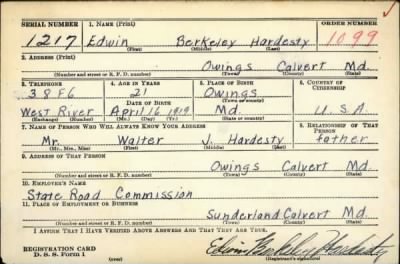 SERIAL NUMBER 1. NAME (Print) ORDER NUMBER
1217 Edwin Berkeley Hardesty 1099
(First) (Middle) (Last)
2. ADDRESS (Print)
Owings Calvert Md.
(Number and street or R. F. D. number) (Town) (County) (State)
3. TELEPHONE 4. AGE IN YEARS 5. PLACE OF BIRTH 6. COUNTRY OF CITIZENSHIP
38F6 21 Owings
DATE OF BIRTH (Town or county)
West River April 16 1919 Md. U.S.A.
(Exchange) (Number) (Mo.) (Day) (Yr.) (State or country)
7. NAME OF PERSON WHO WILL ALWAYS KNOW YOUR ADDRESS 8. RELATIONSHIP OF THAT PERSON
Mr. Walter J. Hardesty father
(Mr., Mrs., Miss) (First) (Middle) (Last)
9. ADDRESS OF THAT PERSON
Owings Calvert Md.
(Number and street or R. F. D. number) (Town) (County) (State)
10. EMPLOYER'S NAME
State Road Commission
11. PLACE OF EMPLOYMENT OR BUSINESS
Sunderland Calvert Md.
(Number and street or R. F. D. number) (Town) (County) (State)
I AFFIRM THAT I HAVE VERIFIED ABOVE ANSWERS AND THAT THEY ARE TRUE.
REGISTRATION CARD
D. S. S. Form 1 Edwin Berkeley Hardesty
(Registrant's signature)